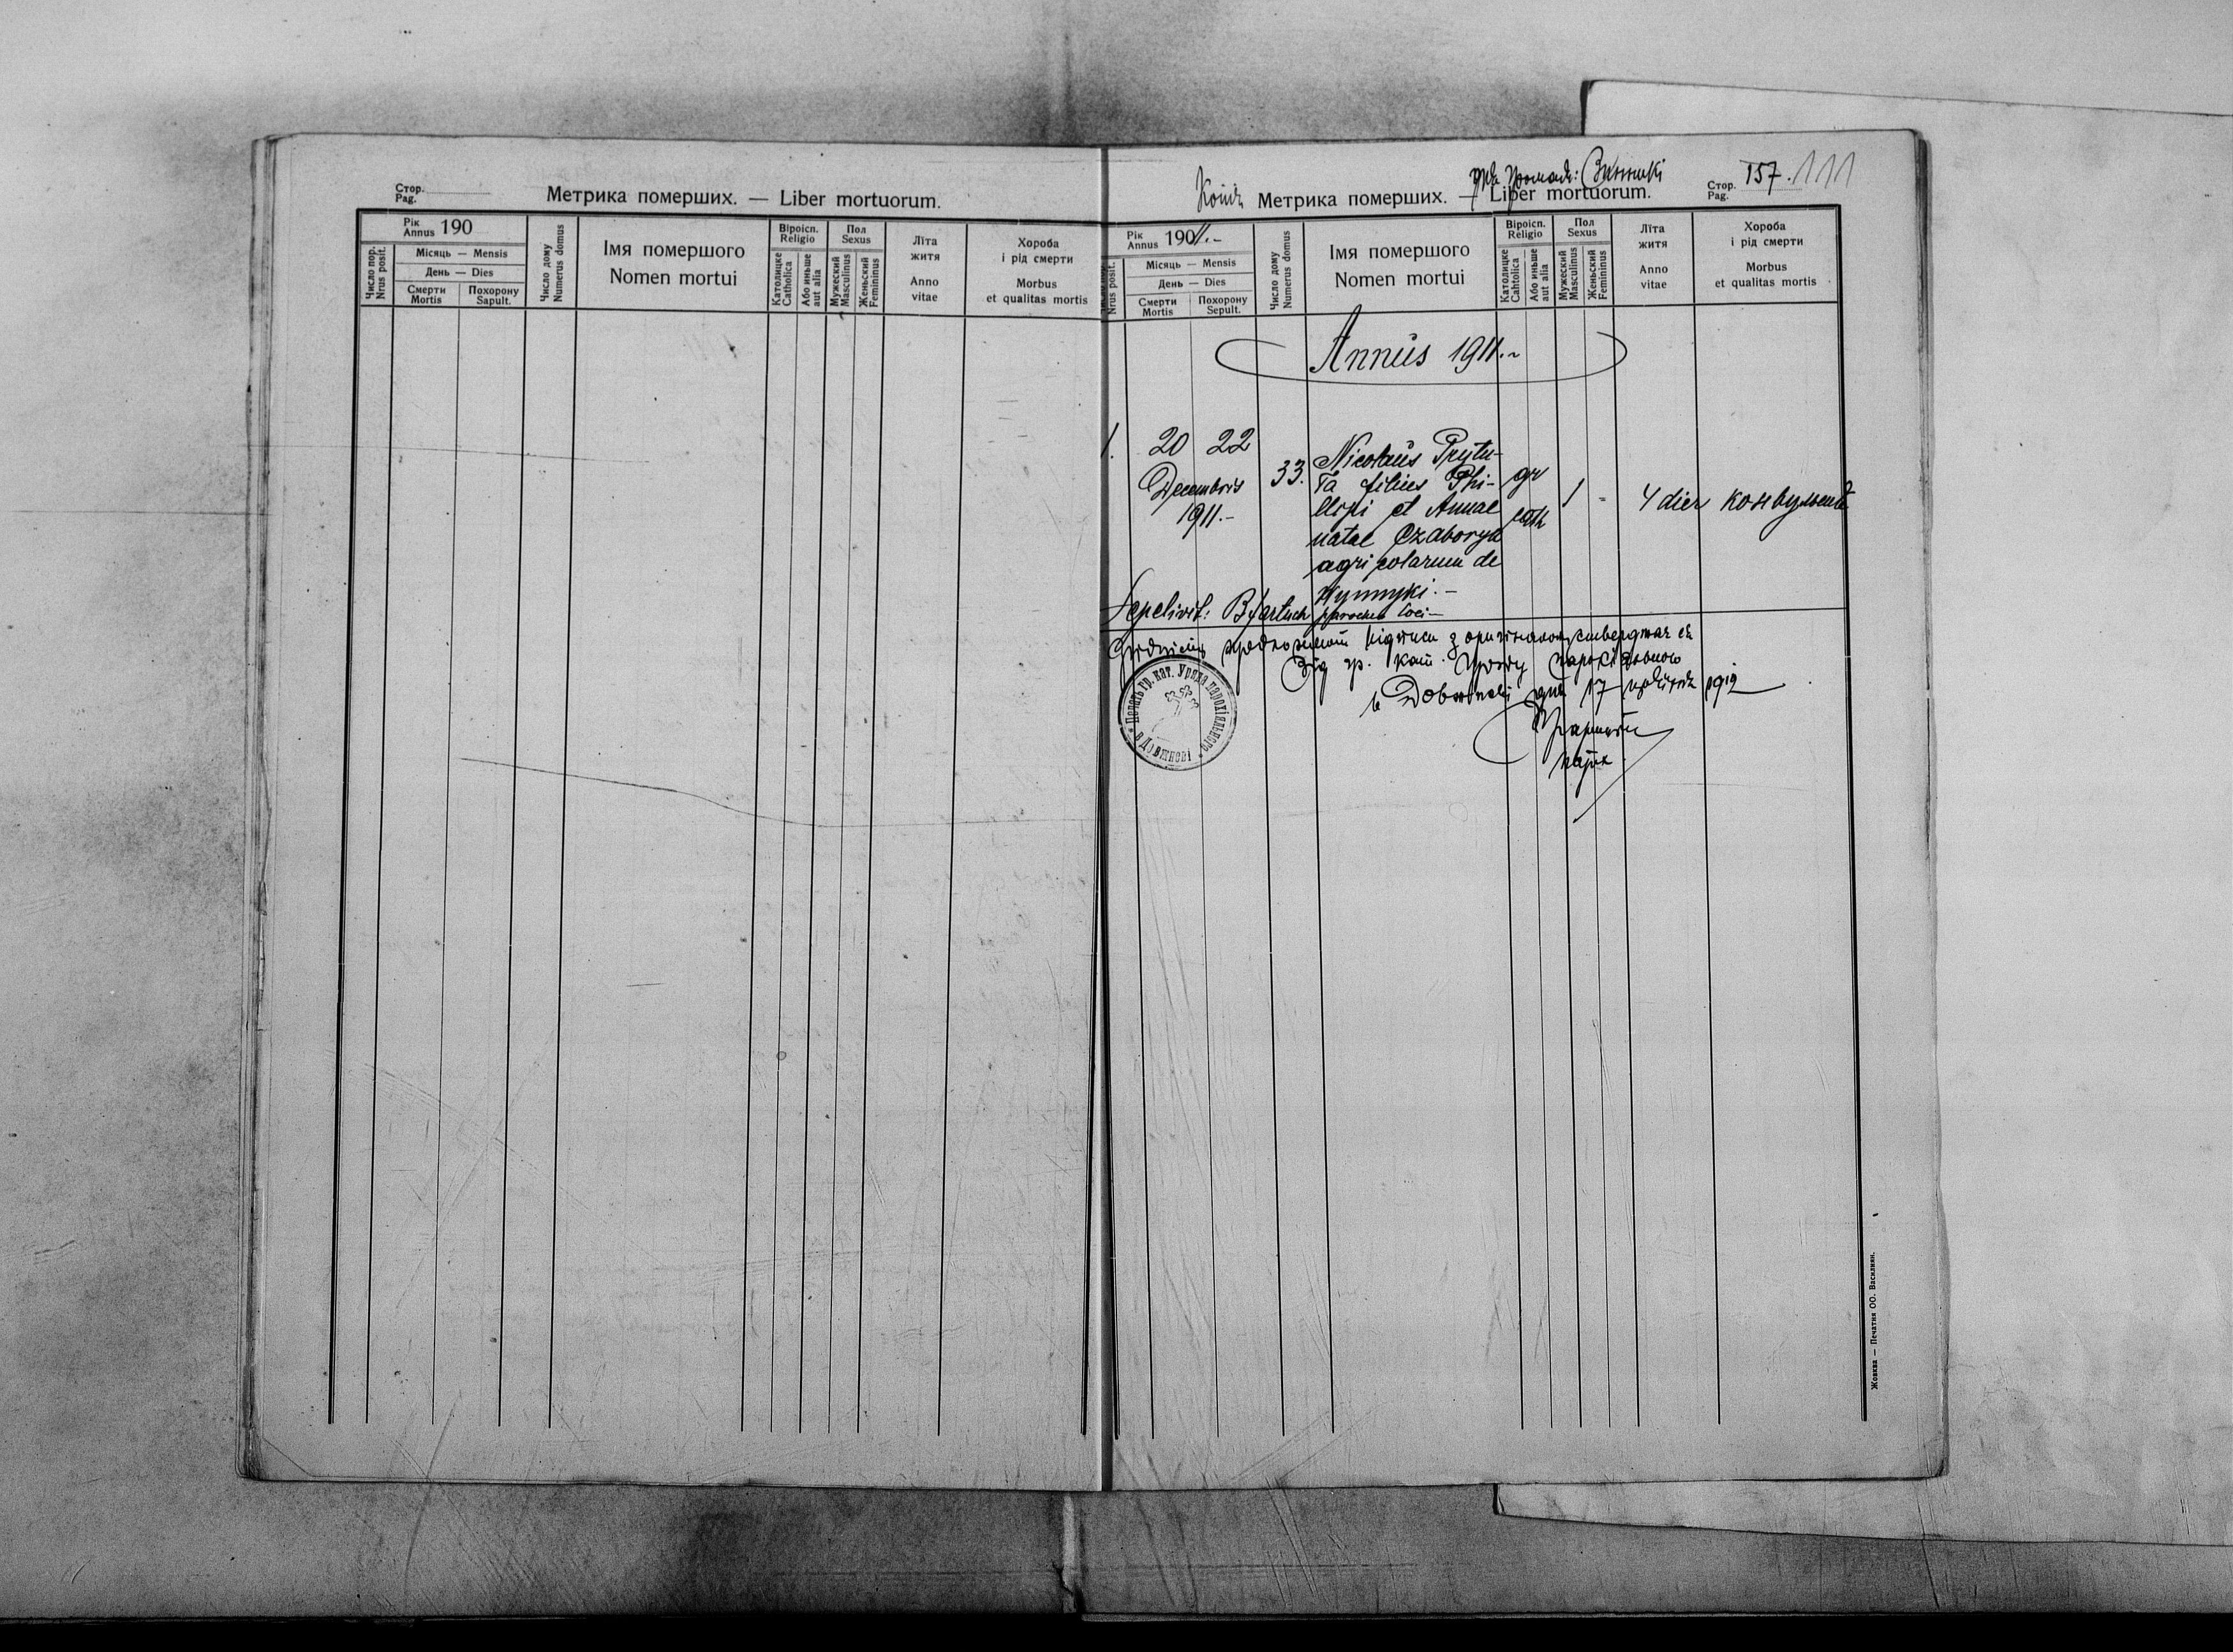 Стор.
Pag.
Метрика померших. — Liber mortuorum.
Рік
Annus 190
Число пор.
Nrus posit.
Місяць — Mensis
День — Dies
Смерти
Mortis
Похорону
Sapult.
Число дому
Numerus domus
Імя помершого
Nomen mortui
Віроісп.
Religio
Католицке
Catholica
Або иньше
aut alia
Пол
Sexus
Мужеский
Masculinus
Женьский
Femininus
Літа
житя
Anno
vitae
Хороба
і рід смерти
Morbus
et qualitas mortis
для громади: Винники
Копія Метрика померших. — Liber mortuorum.
Стор.
Pag. 157. 111
Рік
Annus 1911.-
Nrus posit.
Місяць — Mensis
День — Dies
Смерти
Mortis
Похорону
Sepult.
Число дому
Numerus domus
Імя помершого
Nomen mortui
Віроісп.
Religio
Католицке
Cahtolica
Або иньше
aut alia
Пол
Sexus
Мужеский
Masculinus
Женьский
Femininus
Літа
житя
Anno
vitae
Хороба
і рід смерти
Morbus
et qualitas mortis
Annus 1911.-
1. 20 22
Decembris
1911.-
33.
Nicolaus Prytu-
ła filius Phi-
llipi et Annae
natae Czaboryk
agricolarum de
Wynnyki.-
gr
cath
1 -
4 dier
конвульсий
Sepelivit: B Jartuch parochus loci-
з оригіналом стверджає ся
Від гр. кат. Уряду парохіяльного
в Довжневі дня 17 1912
парох
Печать гр. кат. Уряда парохіяльного
в Довжневі
Жовква — Печатня ОО. Василиян.